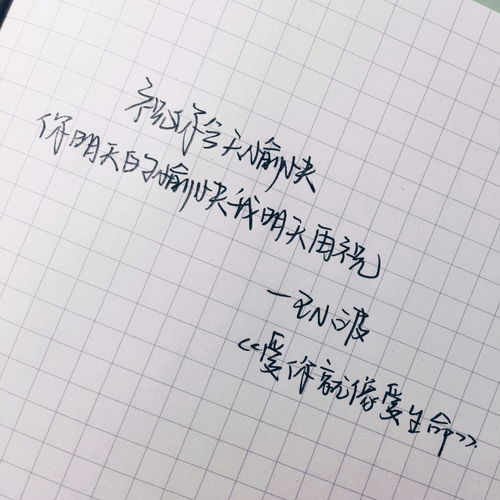 祝你今天愉快
你明天的愉快我明天再祝
—王小波
《爱你就像爱生命》